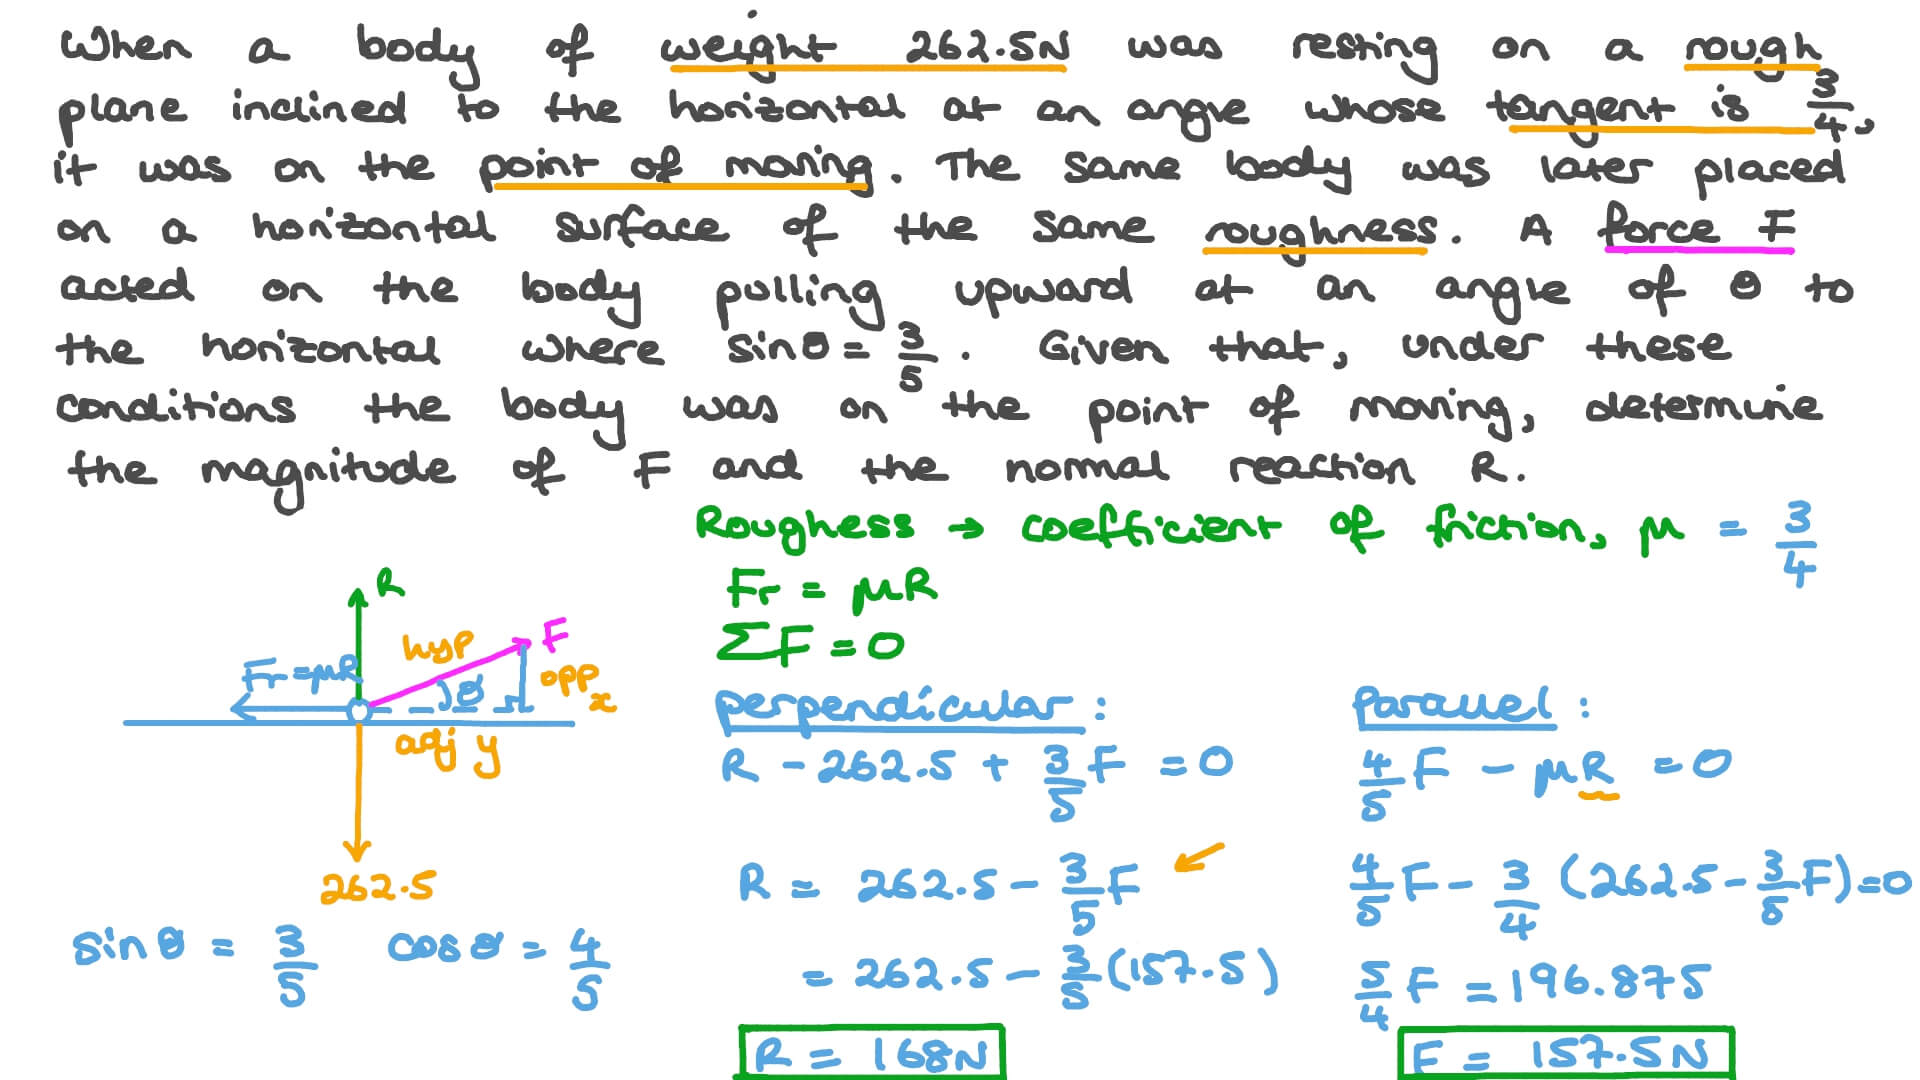 When a body of weight 262.5N was resting on a rough
plane inclined to the horizontal at an angle whose tangent is 3/4,
it was on the point of moving. The same body was later placed
on a horizontal surface of the same roughness. A force F
acted on the body pulling upward at an angle of θ to
the horizontal where sinθ = 3/5. Given that, under these
conditions the body was on the point of moving, determine
the magnitude of F and the normal reaction R.
Roughness → coefficient of friction, μ = 3/4
Fr = μR
ΣF = 0
R
F
hyp
Fr = μR
θ
opp x
adj y
262.5
sin θ = 3/5 cos θ = 4/5
perpendicular:
R - 262.5 + 3/5 F = 0
R = 262.5 - 3/5 F
= 262.5 - 3/5 (157.5)
R = 168N
Parallel:
4/5 F - μR = 0
4/5 F - 3/4 (262.5 - 3/5 F) = 0
5/4 F = 196.875
F = 157.5N